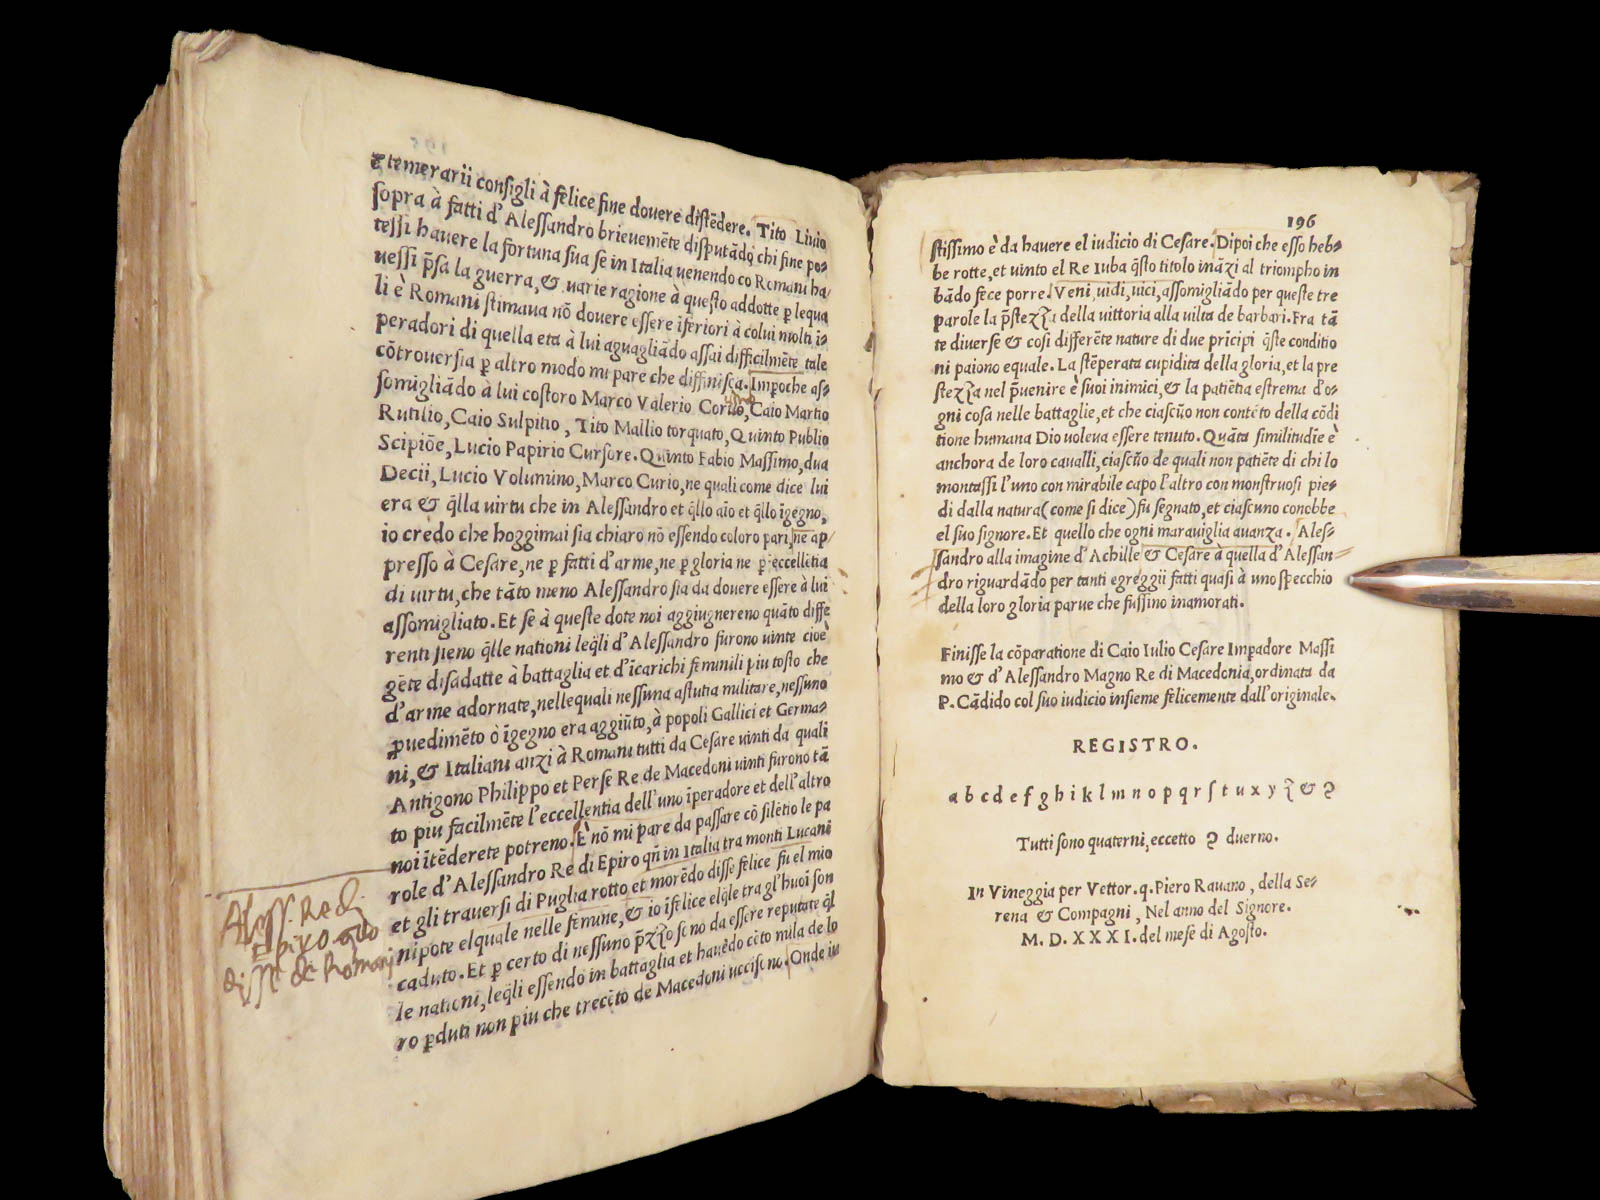 et temerarii consigli à felice fine douere distēdere. Tito Liuio
sopra à fatti d'Alessandro brieuemēte disputādo chi fine po-
tessi hauere la fortuna sua se in Italia uenendo co Romani ha/
uessi p̄sa la guerra, & uarie ragione à questo addotte ꝑ lequa
li è Romani stimaua nō douere essere īferiori à colui molti ī-
peradori di quella eta à lui aguagliādo assai difficilmēte tale
cōtrouersia ꝑ altro modo mi pare che diffinisca. Imꝑoche as-
somigliādo à lui costoro Marco Valerio Coruo, Caio Martio
Rutilio, Caio Sulpitio, Tito Mallio torquato, Quinto Publio
Scipiōe, Lucio Papirio Cursore. Quinto Fabio Massimo, dua
Decii, Lucio Volumino, Marco Curio, ne quali come dice lui
era & q̄lla uirtu che in Alessandro et q̄llo aīo et q̄llo īgegno,
io credo che hoggimai sia chiaro nō essendo coloro pari, ne ap/
presso à Cesare, ne ꝑ fatti d'arme, ne ꝑ gloria ne ꝑ eccellētia
di uirtu, che tāto meno Alessandro sia da douere essere à lui
assomigliato. Et se à queste dote noi aggiugnereno quāto diffe
renti sieno q̄lle nationi leq̄li d'Alessandro furono uinte cioè
gēte disadatte à battaglia et d'īcarichi feminili piu tosto che
d'arme adornate, nellequali nessuna astutia militare, nessuno
ꝓuedimēto ò īgegno era aggiūto, à popoli Gallici et Germa-
ni, & Italiani anzi à Romani tutti da Cesare uinti da quali
Antigono Philippo et Perse Re de Macedoni uinti furono tā
to piu facilmēte l'eccellentia dell'uno īperadore et dell'altro
noi ītēderete potreno. È nō mi pare da passare cō silētio le pa
role d'Alessandro Re di Epiro qn̄ in Italia tra monti Lucani
et gli trauersi di Puglia rotto et morēdo disse felice fu el mio
nipote elquale nelle femine, & io īfelice elq̄le tra gl'huoī son
caduto. Et ꝑ certo di nessuno p̄zzo seno da essere reputate q̄l
le nationi, leq̄li essendo in battaglia et hauēdo cēto mila de lo
ro ꝑduti non piu che trecēto de Macedoni uccisono. Onde iu
Aless. Re di
Epiro qllo
disse de Romani
196
stissimo è da hauere el iudicio di Cesare. Dipoi che esso heb-
be rotte, et uinto el Re Iuba q̄sto titolo ināzi al triompho in
bādo fece porre. Veni, uidi, uici, assomigliādo per queste tre
parole la p̄stezza della uittoria alla uilta de barbari. Fra tā
te diuerse & cosi differēte nature di due prīcipi q̄ste conditio
ni paiono equale. La stēperata cupidita della gloria, et la pre
stezza nel p̄uenire è suoi inimici, & la patiētia estrema d'o-
gni cosa nelle battaglie, et che ciascūo non contēto della cōdi
tione humana Dio uoleua essere tenuto. Quāta similitudīe è
anchora de loro caualli, ciascūo de quali non patiēte di chi lo
montassi l'uno con mirabile capo l'altro con monstruosi pie-
di dalla natura (come si dice) fu segnato, et ciascuno conobbe
el suo signore. Et quello che ogni marauiglia auanza. Ales-
sandro alla imagine d'Achille & Cesare à quella d'Alessan-
dro riguardādo per tanti egreggii fatti quasi à uno specchio
della loro gloria parue che fussino inamorati.
Finisse la cōparatione di Caio Iulio Cesare Imꝑadore Massi
mo & d'Alessandro Magno Re di Macedonia, ordinata da
P. Cādido col suo iudicio insieme felicemente dall'originale.
REGISTRO.
a b c d e f g h i k l m n o p q r ſ t u x y z & ꝯ
Tutti sono quaterni, eccetto ꝯ duerno.
In Vineggia per Vettor. q. Piero Rauano, della Se-
rena & Compagni, Nel anno del Signore.
M. D. XXXI. del mese di Agosto.